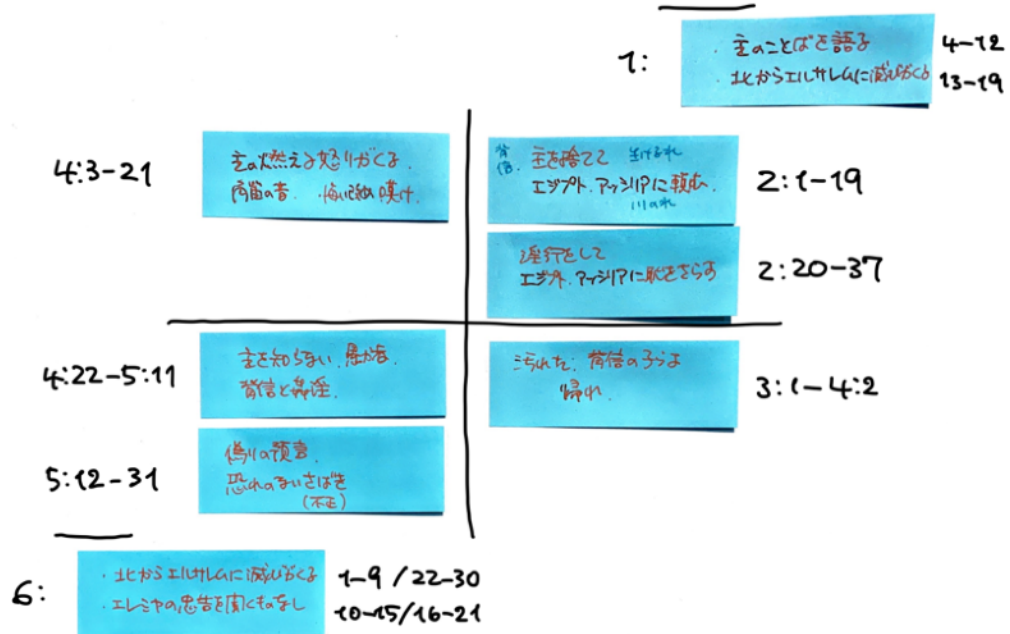 1:
・主のことばを語る 4-12
・北からエルサレムに滅びがくる 13-19
4:3-21
主の燃える怒りがくる.
角笛の音. 嘆け.
背信. 主を捨てて 生ける水
エジプト.アッシリアに頼む. 2:1-19
川の水
淫行をして
エジプト.アッシリアに恥をさらす 2:20-37
4:22-5:11
主を知らない. 愚か者.
背信と姦淫.
汚れた; 背信の子らよ
帰れ. 3:1-4:2
5:12-31
偽りの預言.
恐れのないさばき
(不正)
6:
・北からエルサレムに滅びがくる 1-9/22-30
・エレミヤの忠告を聞くものなし 10-15/16-21